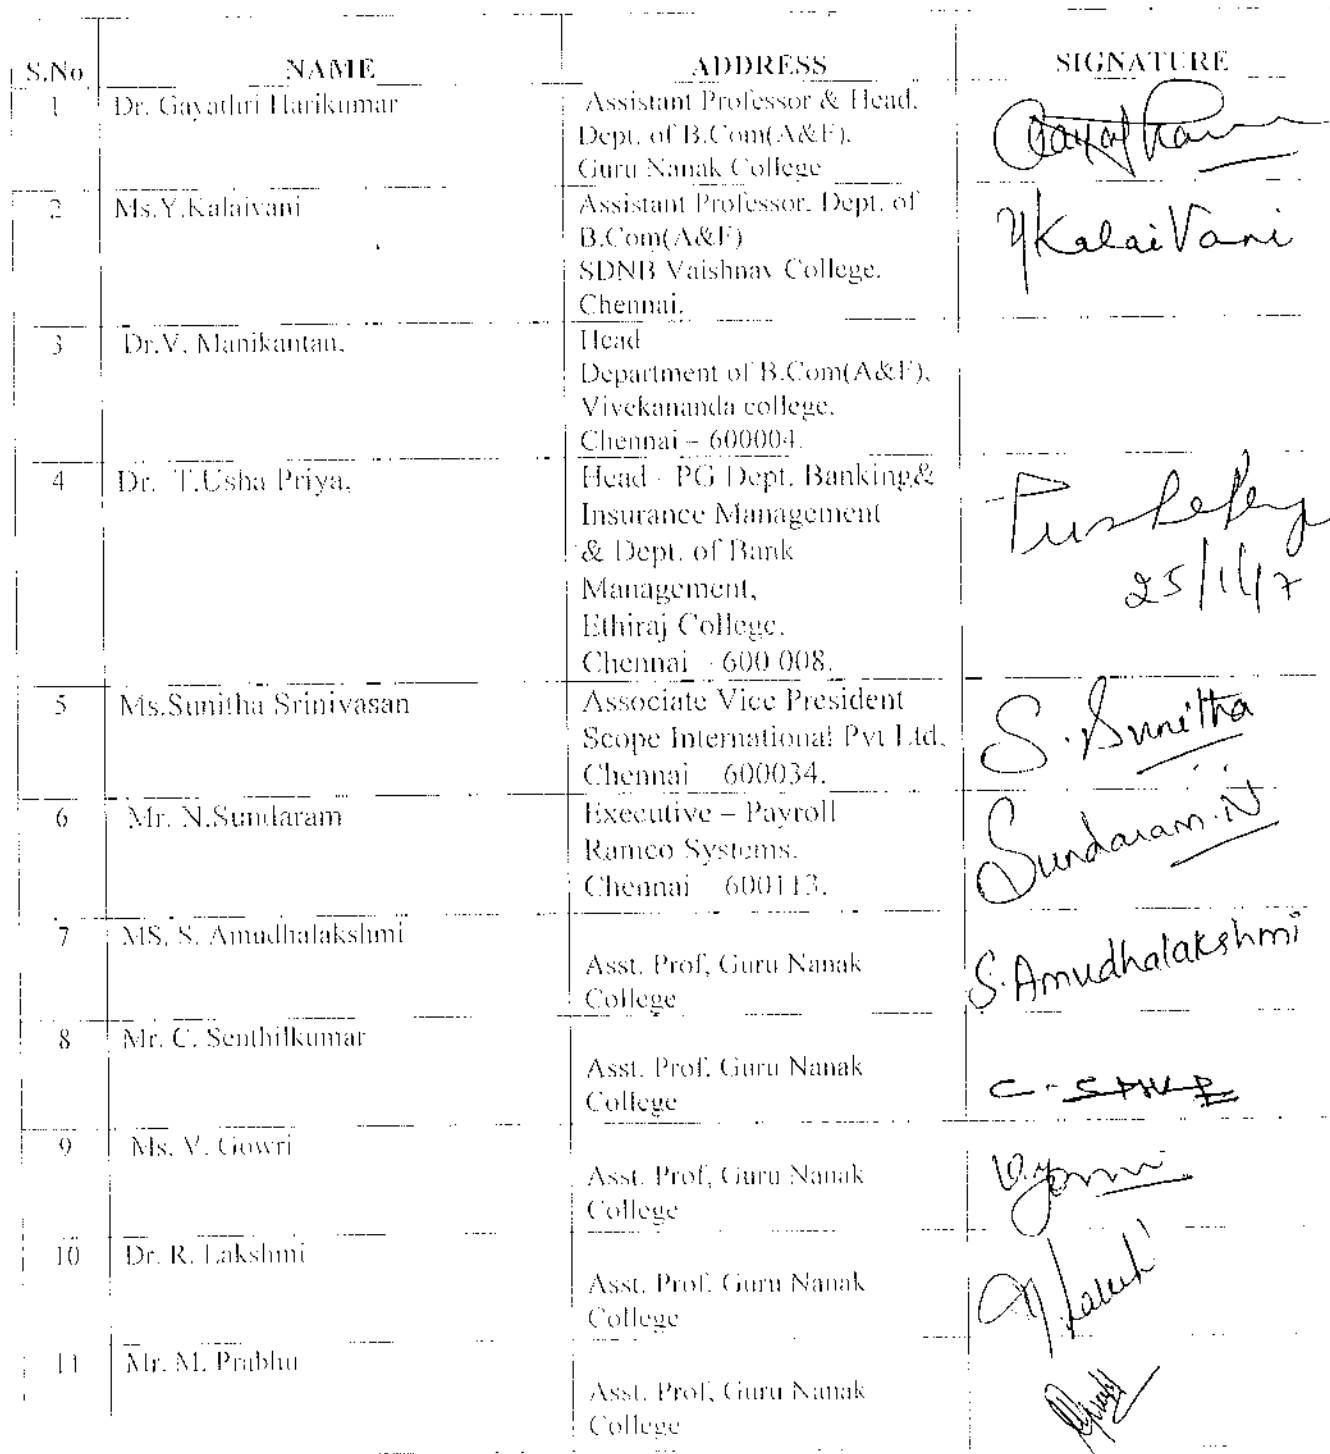 S.No NAME ADDRESS SIGNATURE
1 Dr. Gayathri Harikumar Assistant Professor & Head,
Dept. of B.Com(A&F),
Guru Nanak College
2 Ms.Y.Kalaivani Assistant Professor, Dept. of
B.Com(A&F)
SDNB Vaishnav College,
Chennai.
Y KalaiVani
3 Dr.V. Manikantan, Head
Department of B.Com(A&F),
Vivekananda college,
Chennai – 600004.
4 Dr. T.Usha Priya, Head - PG Dept. Banking&
Insurance Management
& Dept. of Bank
Management,
Ethiraj College,
Chennai - 600 008.
25/1/17
5 Ms.Sunitha Srinivasan Associate Vice President
Scope International Pvt Ltd,
Chennai 600034.
S. Sunitha
6 Mr. N.Sundaram Executive – Payroll
Ramco Systems,
Chennai 600113.
Sundaram.N
7 MS. S. Amudhalakshmi
Asst. Prof, Guru Nanak
College
S.Amudhalakshmi
8 Mr. C. Senthilkumar
Asst. Prof, Guru Nanak
College
9 Ms. V. Gowri
Asst. Prof, Guru Nanak
College
10 Dr. R. Lakshmi
Asst. Prof, Guru Nanak
College
11 Mr. M. Prabhu
Asst. Prof, Guru Nanak
College